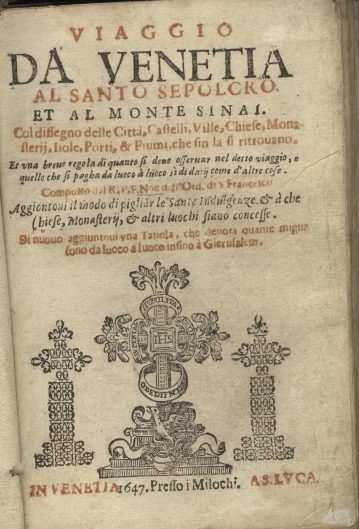 VIAGGIO
DA VENETIA
AL SANTO SEPOLCRO,
ET AL MONTE SINAI.
Col dissegno delle Città, Castelli, Ville, Chiese, Mona-
sterij, Isole, Porti, & Fiumi, che sin la si ritrouano.
Et vna breue regola di quanto si deue osseruar nel detto viaggio, e
quello che si pagha da luoco à luoco sì di datij come d'altre cose.
Composto dal R. P. F. Noe dell'Ord. di S. Francesco
Aggiontoui il modo di pigliar le Sante Indulgenze. & à che
Chiese, Monasterij, & altri luochi siano concesse.
Di nuouo aggiuntoui vna Tauola, che denota quante miglia
sono da luoco a luoco insino à Gierusalem.
IHS
OBEDIEN
IN VENETIA 1647. Presso i Milochi. A S. LVCA.